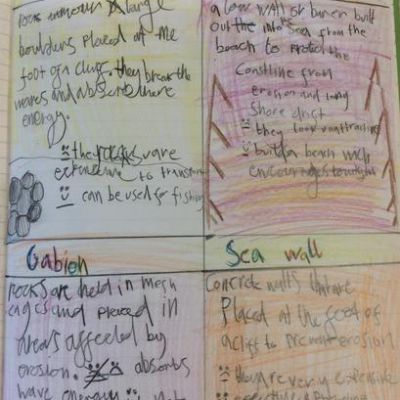 rock armour large
boulders placed at the
foot of a cliff. they break the
waves and absorb there
energy.
the rocks are
to transport
can be used for fishin
a low wall or barrier built
out into sea from the
beach to protect the
Constline from
erosion and long
shore drift
they look unattractive
build a beach wich
encourages tourists
Gabion
Sea wall
rocks are held in mesh
cages and placed in
areas affected by
erosion. absorbs
wave energy
Concrete walls that are
Placed at the foot of
a cliff to prevent erosion
they are very expensive